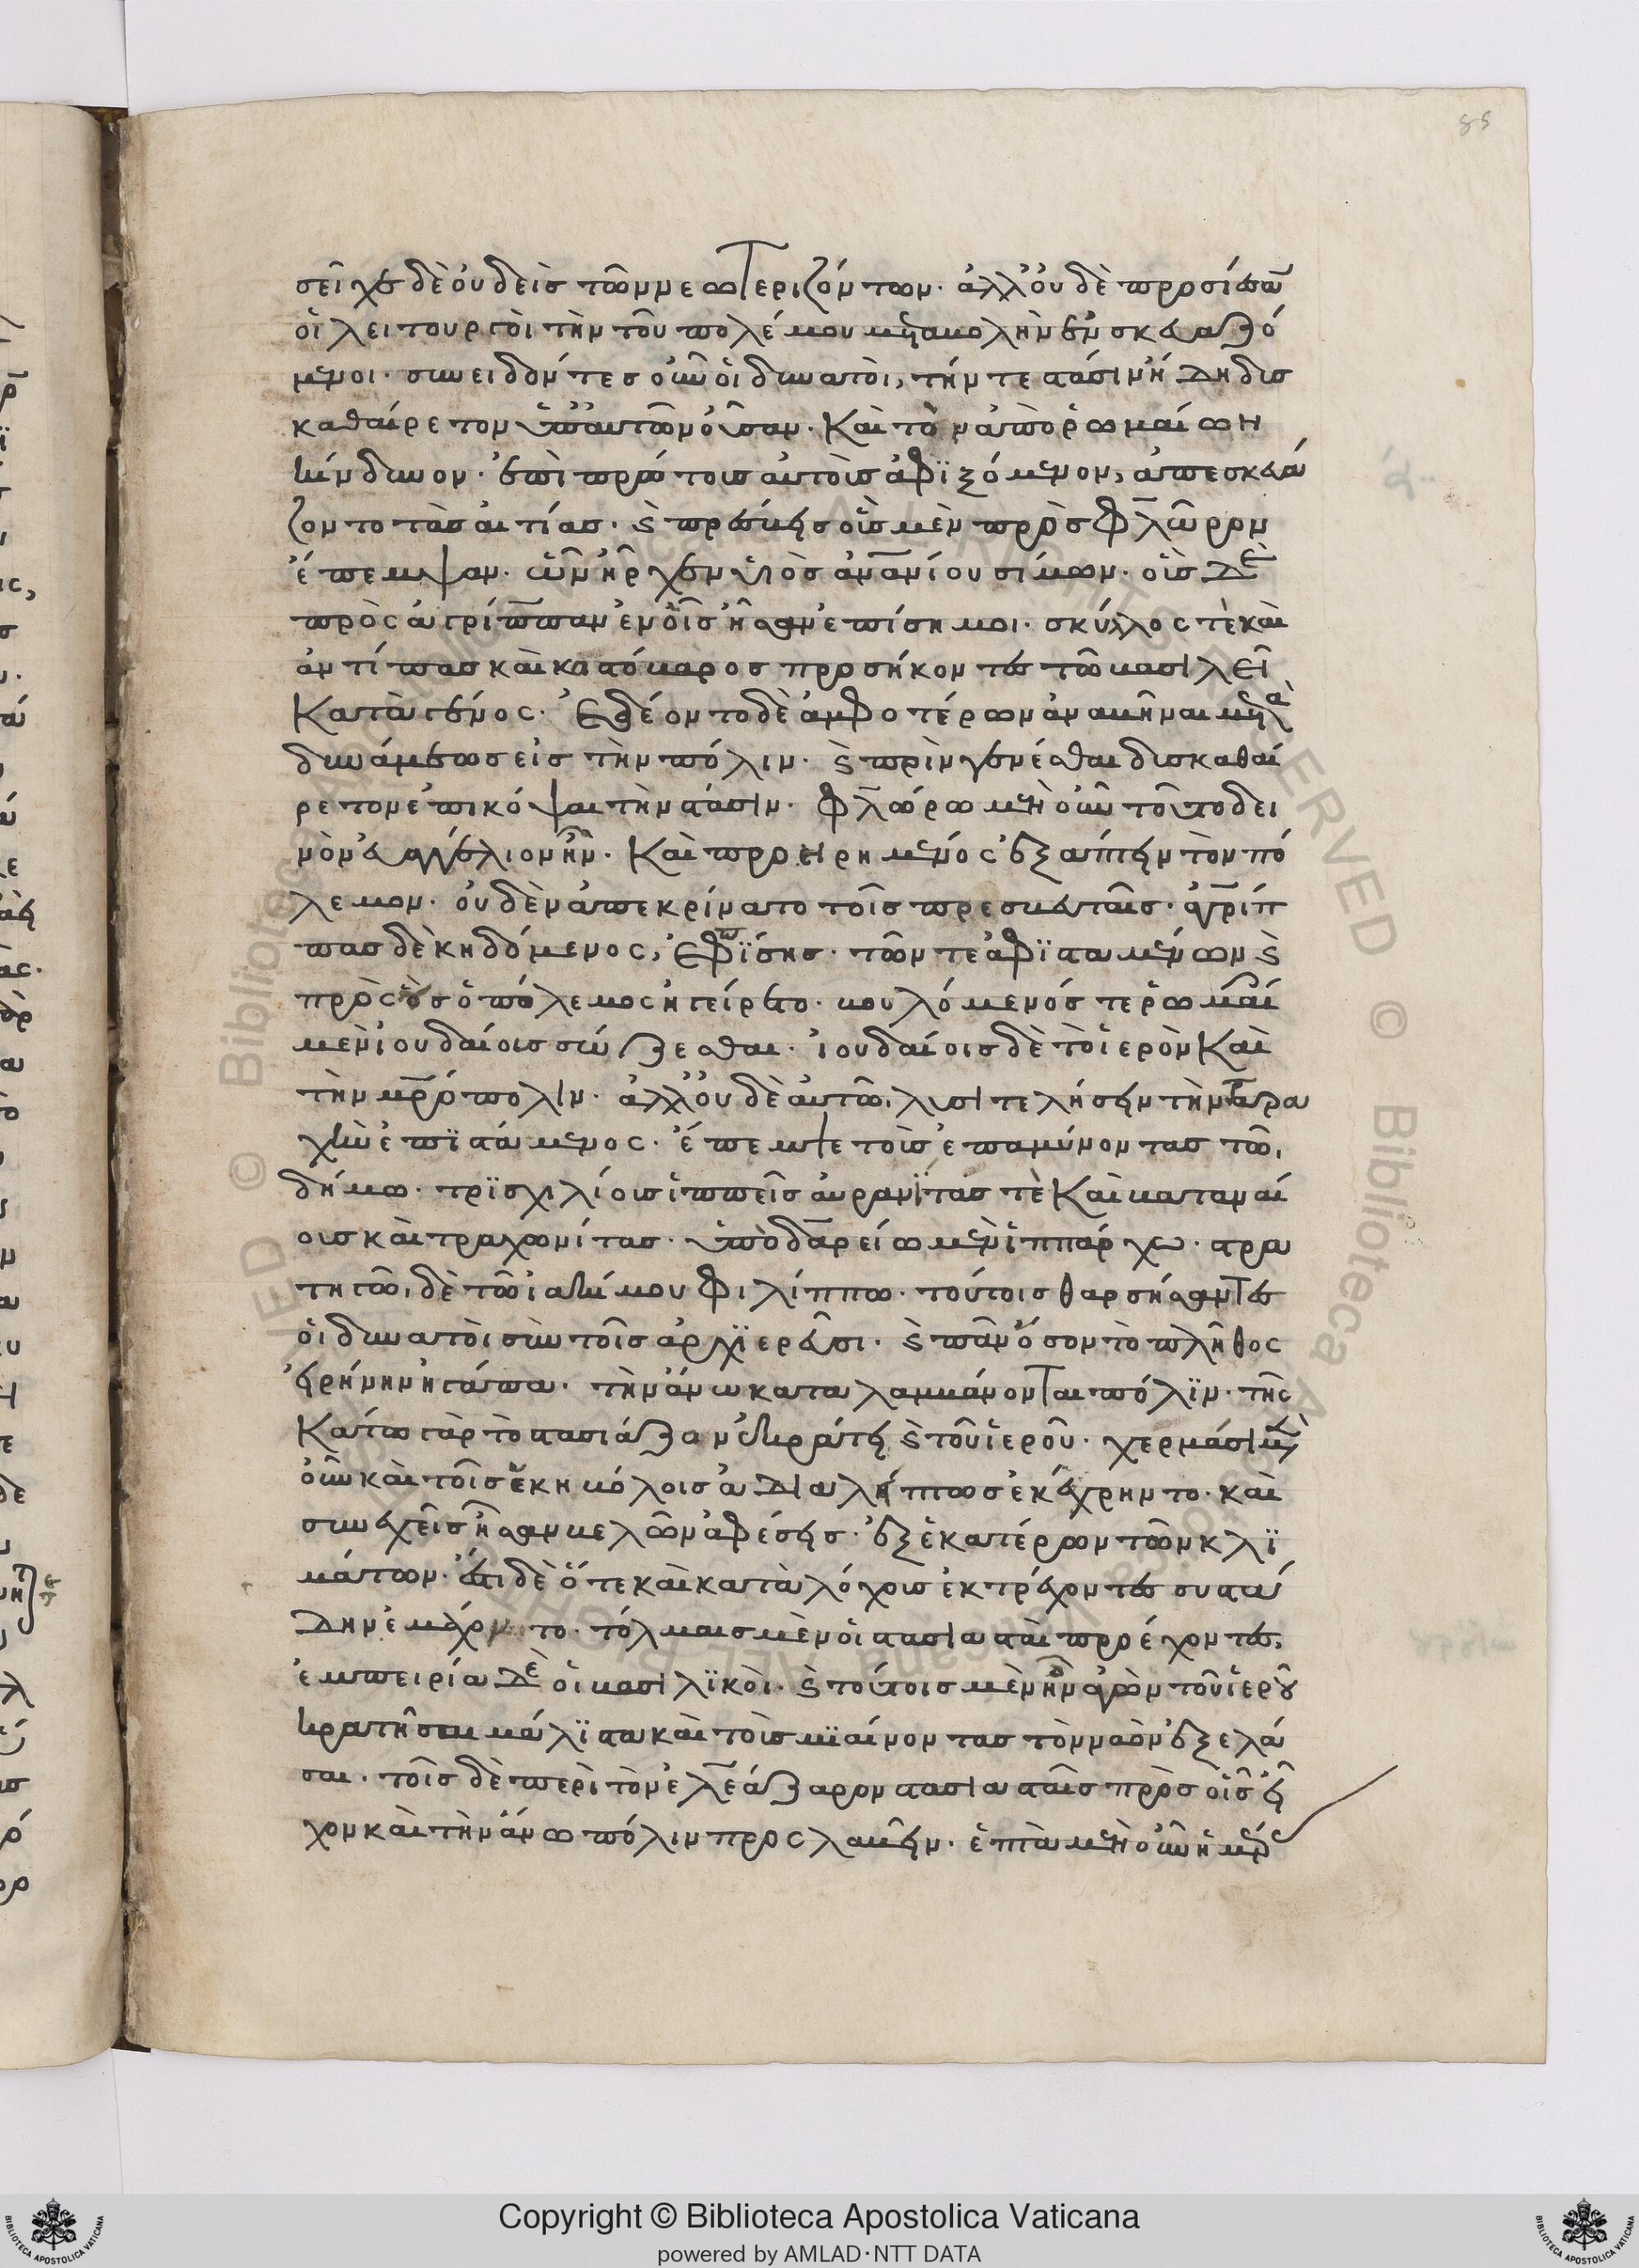 85
σεῖχε δὲ οὐδεὶς τῶν νεωτεριζόντων. ἀλλ' οὐδὲ προσίεσαν
οἱ λειτουργοὶ τὴν τοῦ πολέμου μεταβολὴν ἐνσκευαζό
μενοι. συνειδόντες οὖν οἱ δυνατοὶ, τήν τε στάσιν ἤδη δυσ
καθαίρετον ὑπ' αὐτῶν οὖσαν. καὶ τὸν ἀπὸ ῥωμαίων
κίνδυνον. ἐπὶ πρώτους αὐτοὺς ἀφιξόμενον, ἀπεσκευά
ζοντο τὰς αἰτίας. καὶ πρέσβεις οὓς μὲν πρὸς φλῶρον
ἔπεμψαν. ὧν ἦρχεν υἱὸς ἀνανίου σίμων. οὓς δὲ
πρὸς ἀγρίππαν ἐν οἷς ἦσαν ἐπίσημοι. σαῦλός τε καὶ
ἀντίπας καὶ κοστόβαρος προσήκοντες τῶ βασιλεῖ
κατὰ γένος. ἐδέοντο δὲ ἀμφοτέρων ἀναβῆναι μετὰ
δυνάμεως εἰς τὴν πόλιν. καὶ πρὶν γενέσθαι δυσκαθαί
ρετον ἐπικόψαι τὴν στάσιν. φλώρω μὲν οὖν τοῦτο δει
νὸν εὐαγγέλιον ἦν. καὶ προῃρημένος ἐξάπτειν τὸν πό
λεμον. οὐδὲν ἀπεκρίνατο τοῖς πρεσβευταῖς. ἀγρίπ
πας δὲ κηδόμενος, ἐπίσης. τῶν τε ἀφισταμένων καὶ
πρὸς οὓς ὁ πόλεμος ἠγείρετο. βουλόμενός τε ῥωμαίοις
μὲν ἰουδαίους σώζεσθαι. ἰουδαίοις δὲ τὸ ἱερὸν καὶ
τὴν μητρόπολιν. ἀλλ' οὐδὲ αὐτῶ, λυσιτελήσειν τὴν ταρα
χὴν ἐπιστάμενος. ἔπεμπε τοὺς ἐπαμύνοντας τῶ,
δήμω. τρισχιλίους ἱππεῖς αὐρανίτας τὲ καὶ βαταναί
ους καὶ τραχωνίτας. ὑπὸ δαρείω μὲν ἱππάρχω. στρα
τηγῶ, δὲ τῶ ἰακίμου φιλίππω. τούτοις θαρσήσαντες
οἱ δυνατοὶ σὺν τοῖς ἀρχιερεῦσι. καὶ πᾶν ὅσον τὸ πλῆθος
εἰρήνην ἠγάπα. τὴν ἄνω καταλαμβάνονται πόλιν. τῆς
κάτω γὰρ τὸ στασιάζον ἐκράτει καὶ τοῦ ἱεροῦ. χερμάσι μὲν
οὖν καὶ τοῖς ἑκηβόλοις ἀδιαλείπτως ἐκέχρηντο. καὶ
συνεχεῖς ἦσαν βελῶν ἀφέσεις. ἐξ ἑκατέρων τῶν κλι
μάτων. ἔστι δὲ ὅτε καὶ κατὰ λόχους ἐκτρέχοντες συστά
δην ἐμάχοντο. τόλμαις μὲν οἱ στασιασταὶ προέχοντες,
ἐμπειρία δὲ οἱ βασιλικοὶ. καὶ τούτοις μὲν ἦν ἀγὼν τοῦ ἱεροῦ
κρατῆσαι μάλιστα καὶ τοὺς μιαίνοντας τὸν ναὸν ἐξελά
σαι. τοῖς δὲ περὶ τὸν ἐλεάζαρον στασιασταῖς πρὸς οἷς εἶ
χον καὶ τὴν ἄνω πόλιν προσλαβεῖν. ἑπτὰ μὲν οὖν ἡμέραις
Copyright © Biblioteca Apostolica Vaticana
powered by AMLAD·NTT DATA